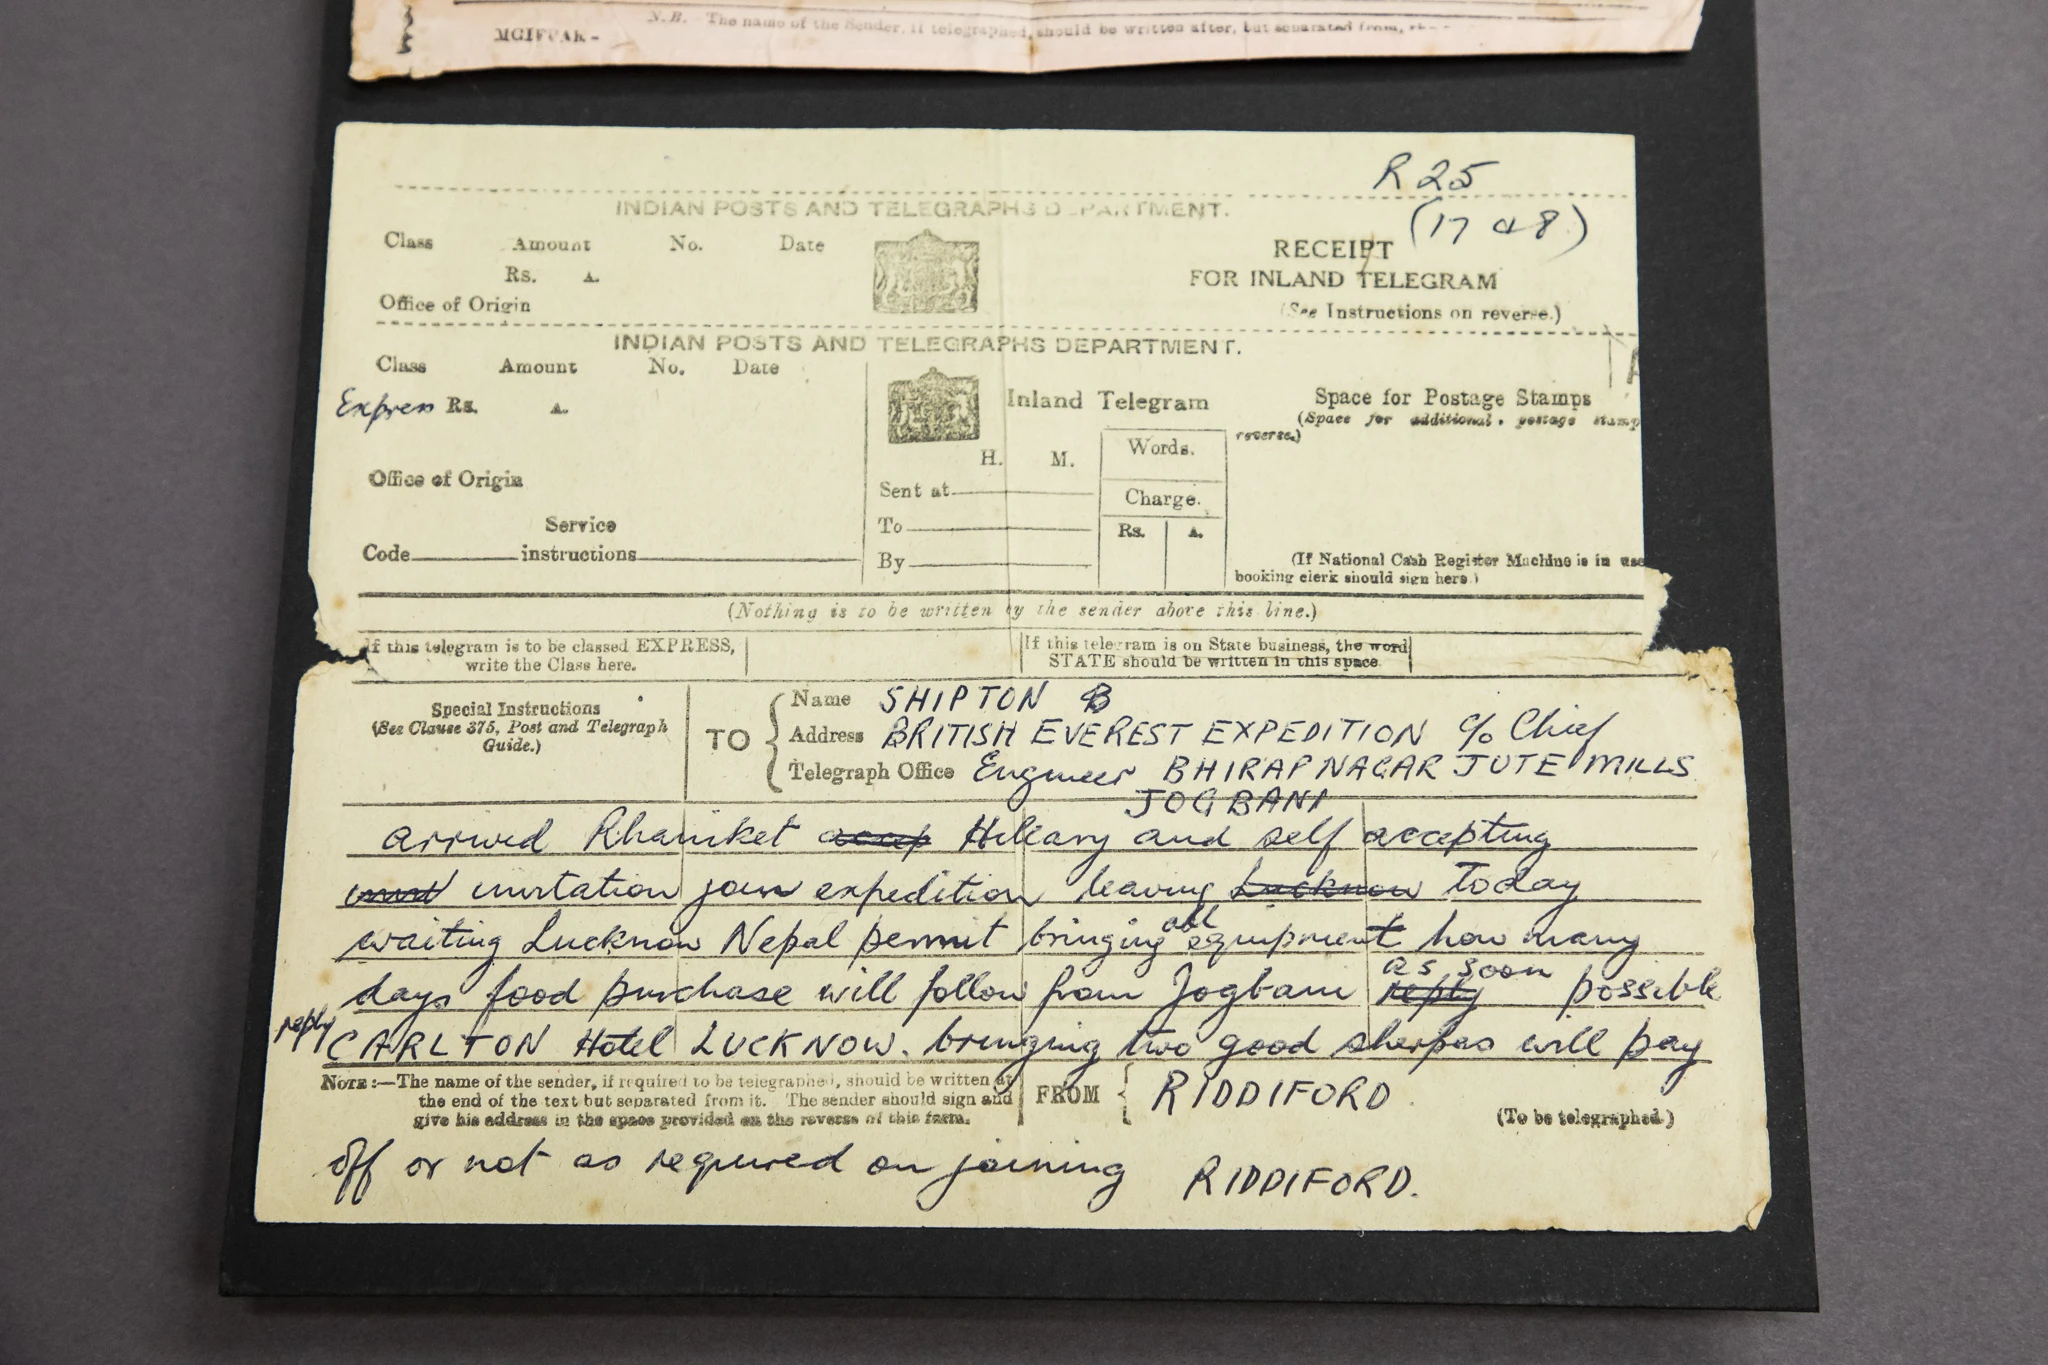 N.B. The name of the Sender, if telegraphed, should be written after, but separated from,
INDIAN POSTS AND TELEGRAPHS DEPARTMENT.
R 25
Class Amount No. Date
Rs. A.
Office of Origin
RECEIPT
FOR INLAND TELEGRAM
(See Instructions on reverse.)
INDIAN POSTS AND TELEGRAPHS DEPARTMENT.
Class Amount No. Date
Express Rs. A.
Office of Origin
Service
Code instructions
Inland Telegram
H. M.
Sent at
To
By
Words.
Charge.
Rs. A.
Space for Postage Stamps
(Space for additional postage stamp
reverse.)
(If National Cash Register Machine is in use
booking clerk should sign here.)
(Nothing is to be written by the sender above this line.)
If this telegram is to be classed EXPRESS,
write the Class here.
If this telegram is on State business, the word
STATE should be written in this space
Special Instructions
(See Clause 375, Post and Telegraph
Guide.)
TO
Name SHIPTON
Address BRITISH EVEREST EXPEDITION c/o Chief
Telegraph Office Engineer BHIRAPNAGAR JUTE MILLS
JOGBANI
arrived Rhaniket accep Hillary and self accepting
invitation join expedition leaving Lucknow Today
waiting Lucknow Nepal permit bringing all equipment how many
days food purchase will follow from Jogbani reply as soon possible
reply CARLTON Hotel LUCKNOW. bringing two good sherpas will pay
NOTE:—The name of the sender, if required to be telegraphed, should be written at
the end of the text but separated from it. The sender should sign and
give his address in the space provided on the reverse of this form.
FROM RIDDIFORD
(To be telegraphed.)
off or not as required on joining RIDDIFORD.